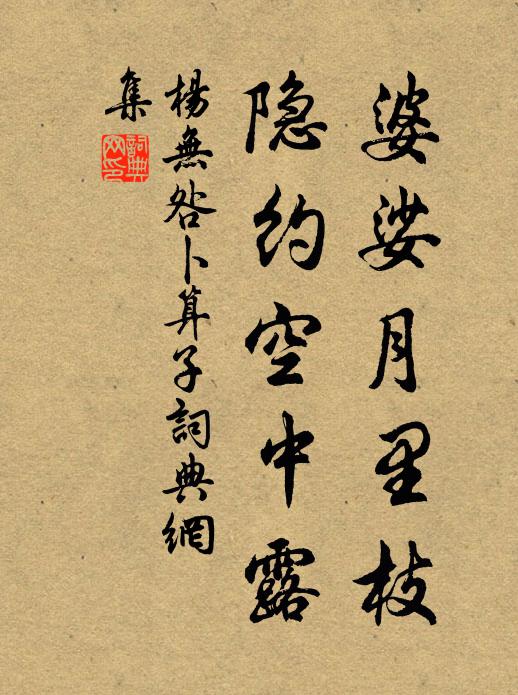 婆娑月里枝
隐约空中露
楊無咎卜算子詞典網
集
詞典
网印